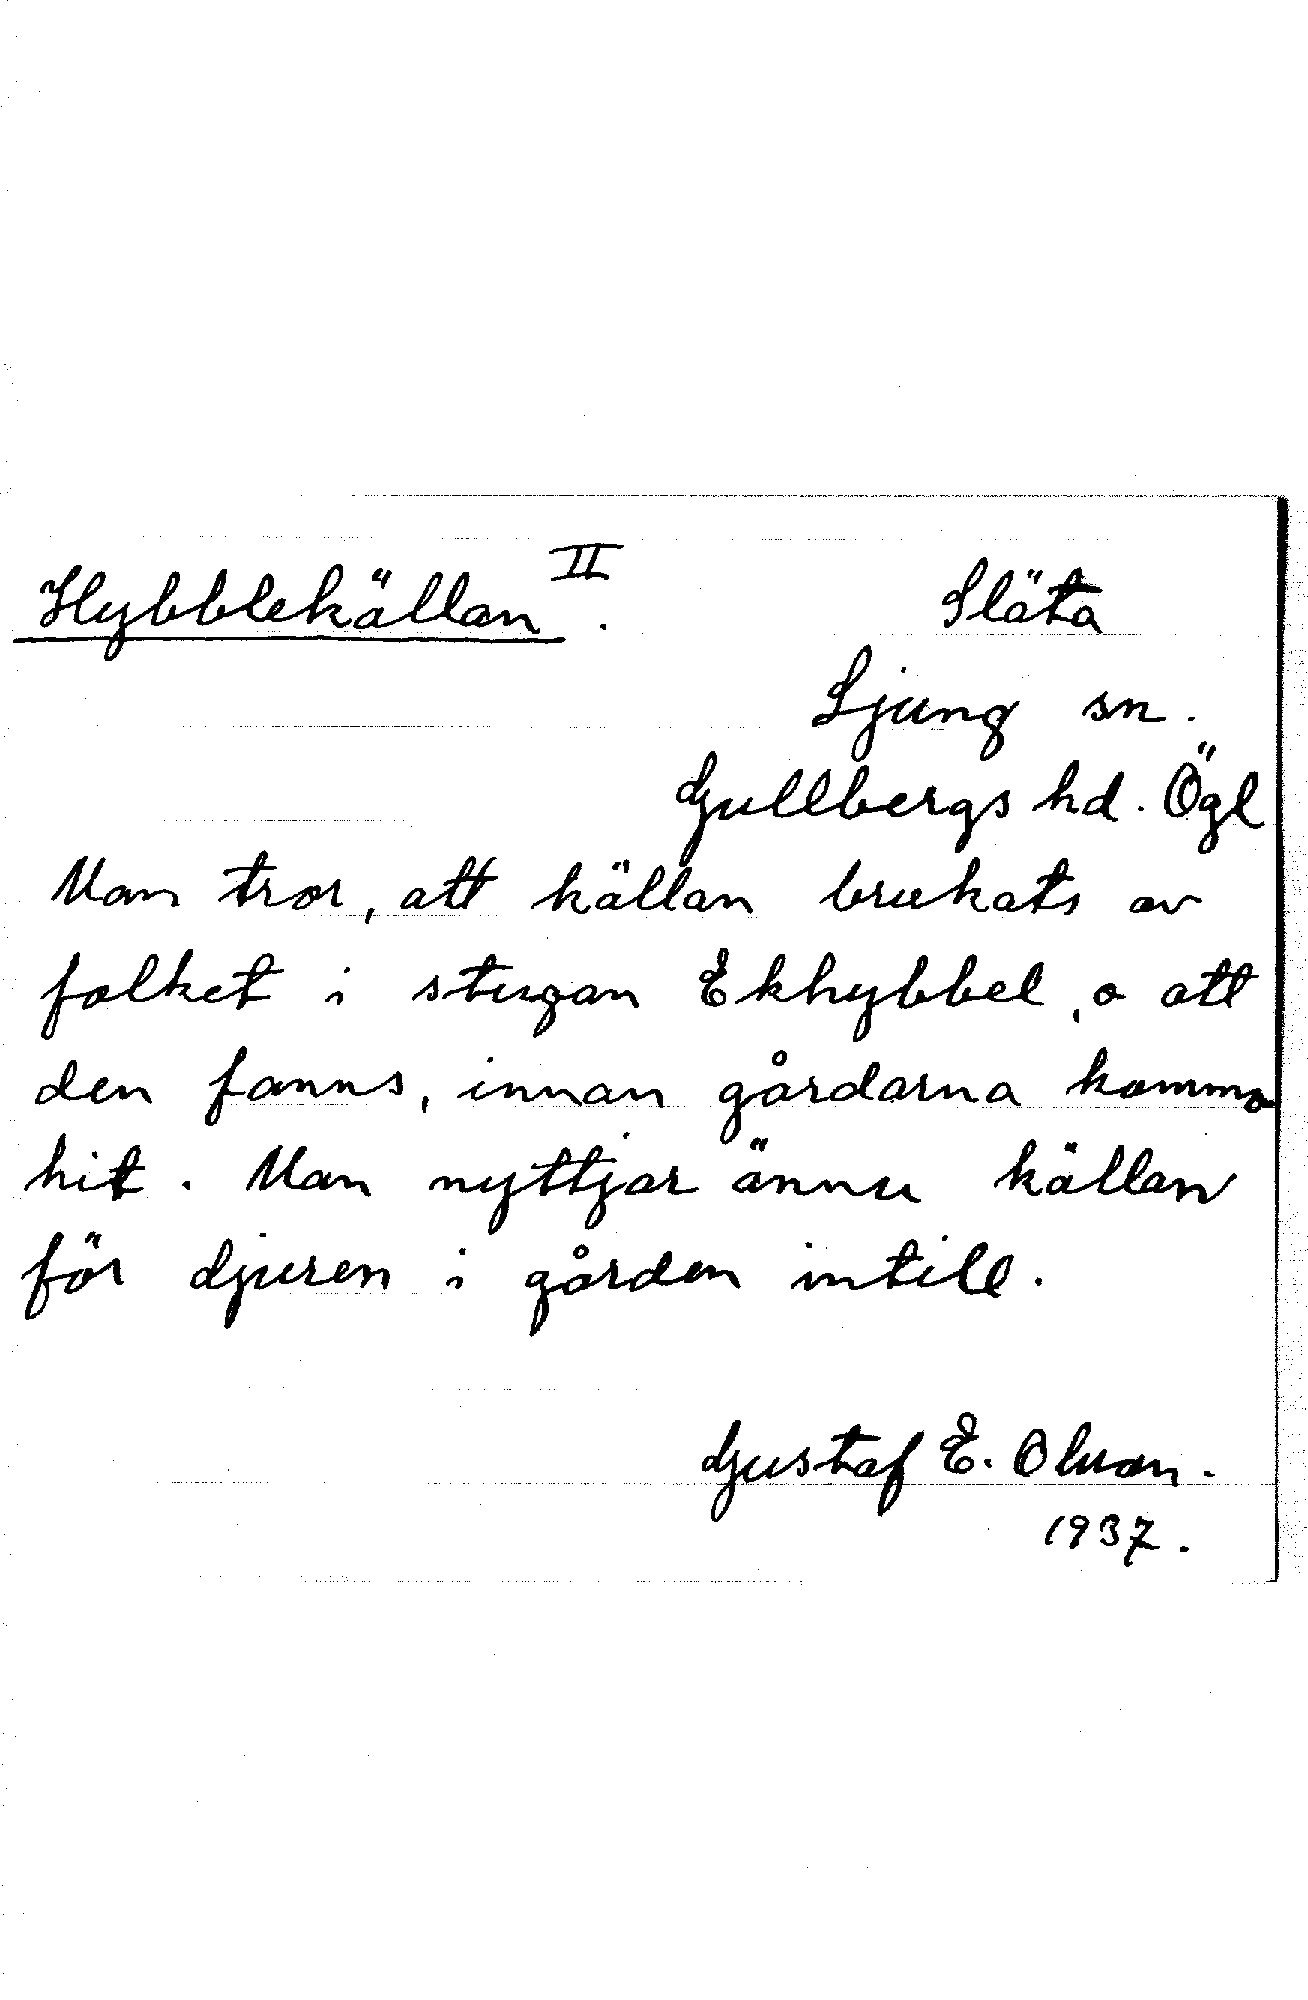 Hybblekällan II. Släta
Ljung sn.
Gullbergs hd. Ögl
Man tror, att källan brukats av
folket i stugan Ekhybbel, o att
den fanns, innan gårdarna kommo
hit. Man nyttjar ännu källan
för djuren i gården intill.
Gustaf E. Olsson.
1937.